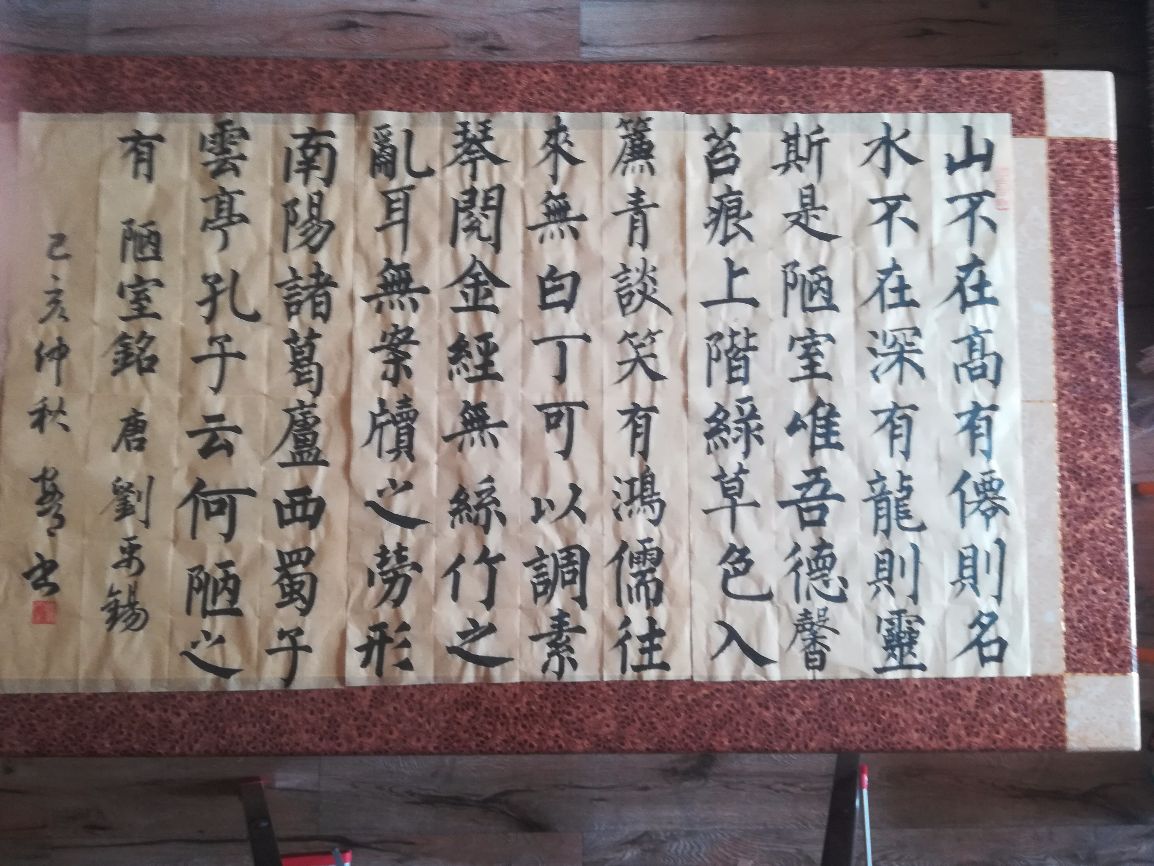 山不在髙有僊則名
水不在深有龍則靈
斯是陋室唯吾德馨
苔痕上階綠草色入
簾青談笑有鴻儒往
來無白丁可以調素
琴閱金經無絲竹之
亂耳無案牘之勞形
南陽諸葛廬西蜀子
雲亭孔子云何陋之
有 陋室銘 唐劉禹錫
己亥仲秋 书